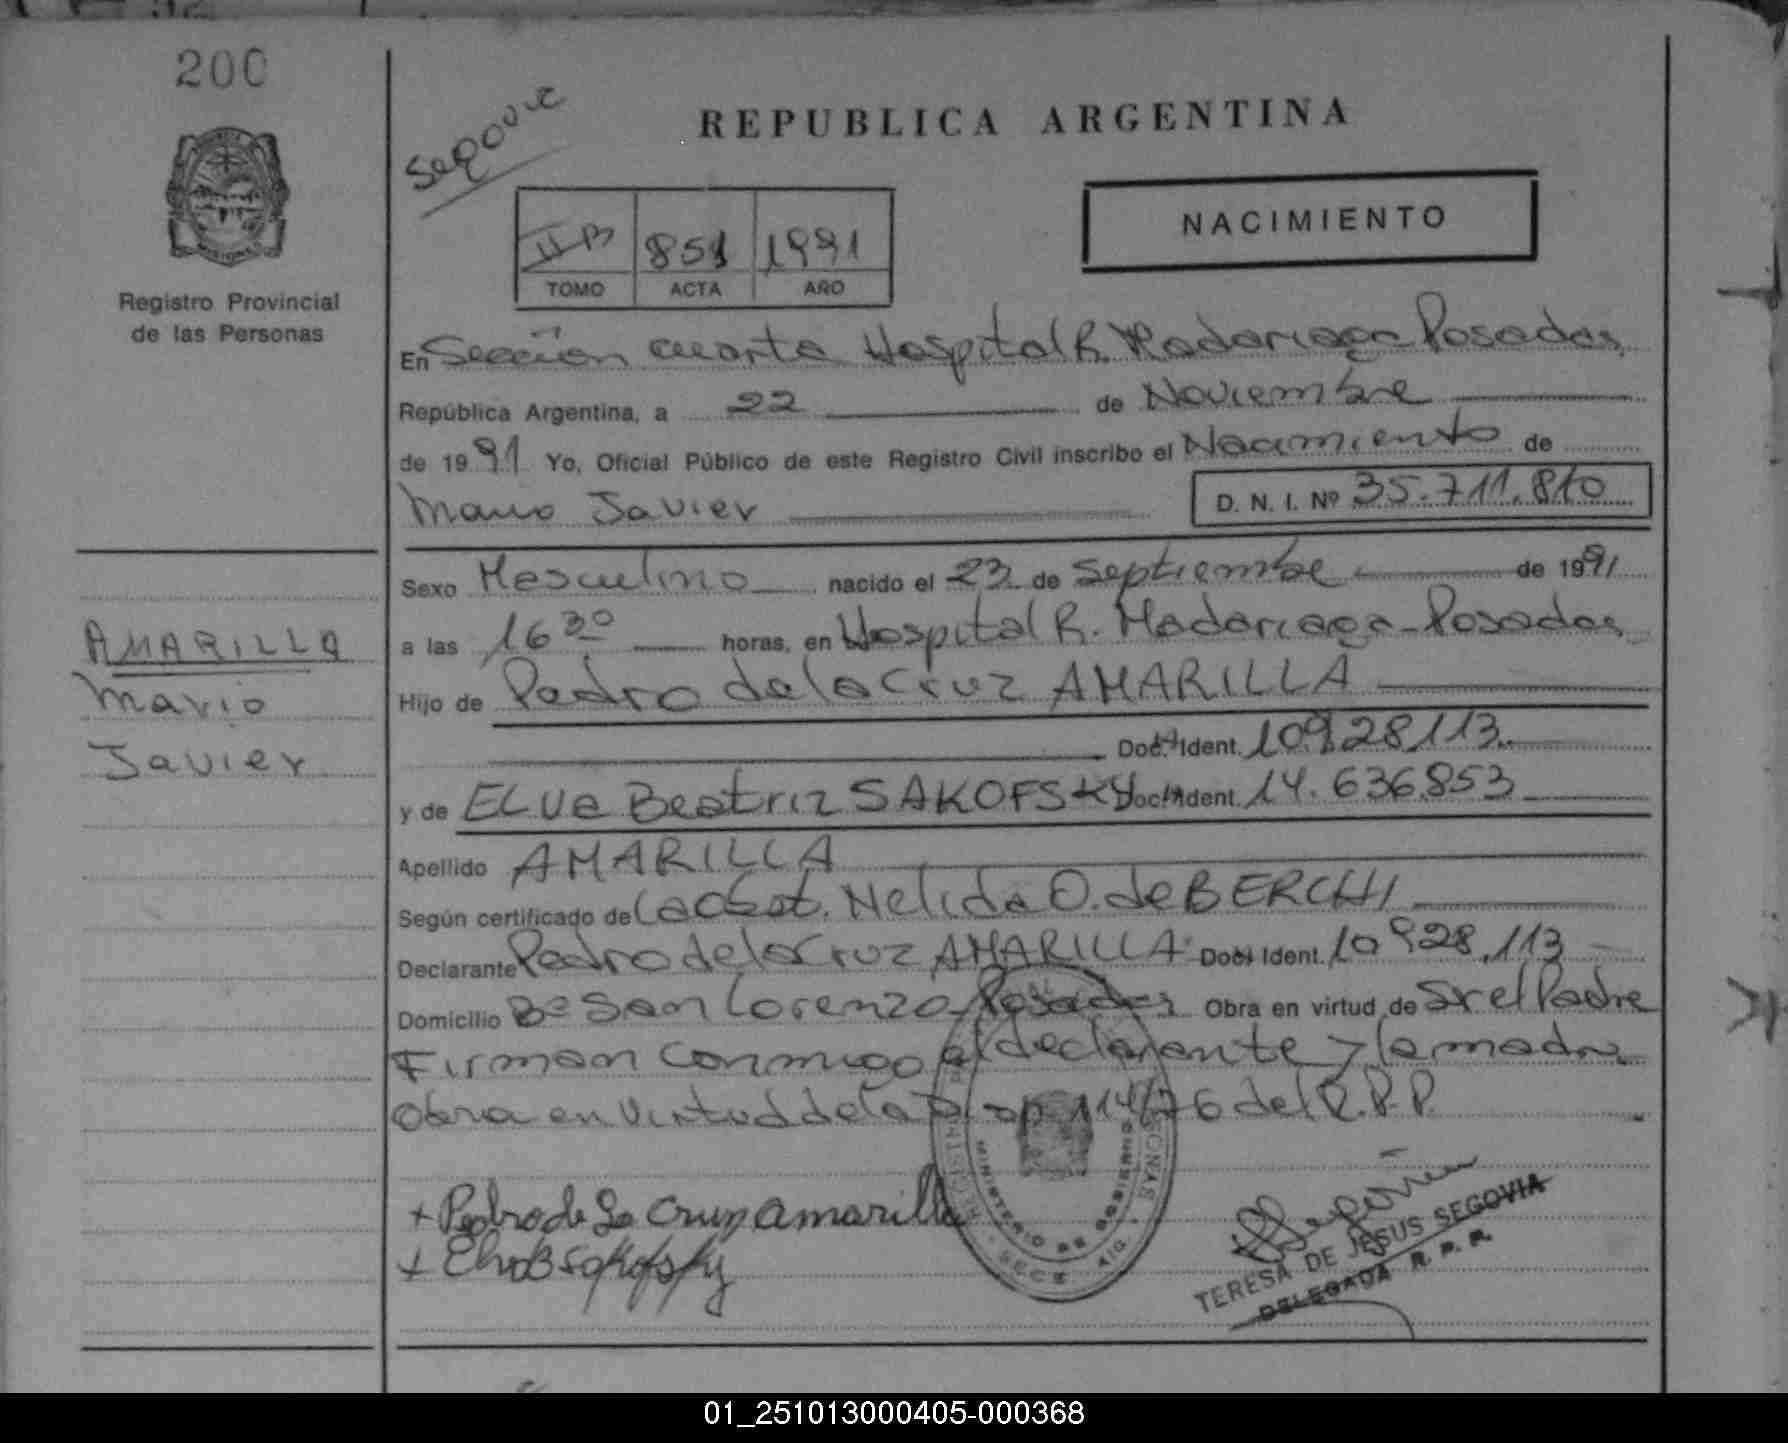 200
Registro Provincial
de las Personas
AMARILLA
Mario
Javier
Segovia
REPUBLICA ARGENTINA
II B 851 1991
TOMO ACTA AÑO
NACIMIENTO
En Sección cuarta Hospital R. Madariaga Posadas
República Argentina, a 22 de Noviembre
de 1991 Yo, Oficial Público de este Registro Civil inscribo el Nacimiento de
Mario Javier D. N. I. Nº 35.711.810
Sexo Masculino nacido el 23 de septiembre de 1991
a las 16 30 horas, en Hospital R. Madariaga - Posadas
Hijo de Pedro de la Cruz AMARILLA
Doc. Ident. 10.928.113
y de ELVa Beatriz SAKOFSKY Doc. Ident. 14.636.853
Apellido AMARILLA
Según certificado de La Obst. Nelida O. de BERCHI
Declarante Pedro de la Cruz AMARILLA Doc. Ident. 10.928.113
Domicilio Bº San Lorenzo - Posadas Obra en virtud de Sr el Padre
Firman conmigo el declarante y la madre
obra en virtud de la Disp 114/76 del R.P.P.
+ Pedro de La Cruz amarilla
+ Elva B Sakofsky
MINISTERIO DE GOBIERNO
TERESA DE JESUS SEGOVIA
DELEGADA R. P. P.
01_251013000405-000368